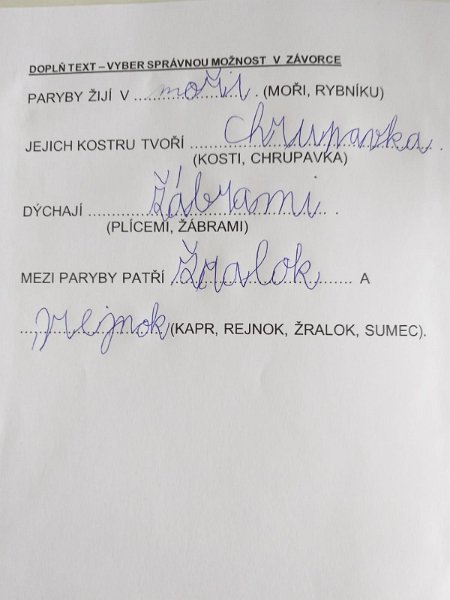 DOPLŇ TEXT – VYBER SPRÁVNOU MOŽNOST V ZÁVORCE
PARYBY ŽIJÍ V ..... moři ..... (MOŘI, RYBNÍKU)
JEJICH KOSTRU TVOŘÍ ..... chrupavka .
(KOSTI, CHRUPAVKA)
DÝCHAJÍ ..... žábrami ..... .
(PLÍCEMI, ŽÁBRAMI)
MEZI PARYBY PATŘÍ ..... žralok ..... A
..... rejnok (KAPR, REJNOK, ŽRALOK, SUMEC).